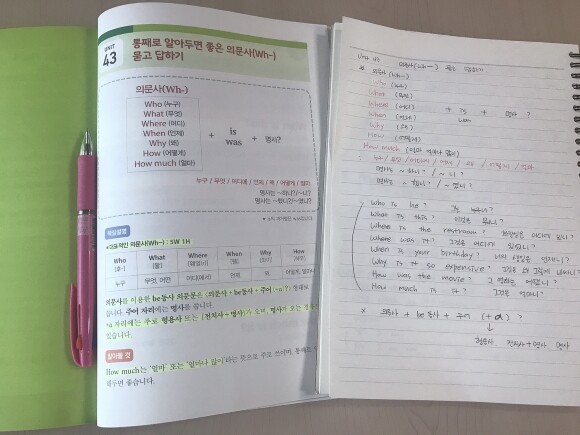 UNIT
43
통째로 알아두면 좋은 의문사(Wh-)
묻고 답하기
의문사(Wh-)
Who (누구)
What (무엇)
Where (어디)
When (언제)
Why (왜)
How (어떻게)
How much (얼마)
+ is
was
+ 명사?
누구 / 무엇 / 어디에 / 언제 / 왜 / 어떻게 / 얼마
명사는 ~하니?/~니?
명사는 ~했니?/~였니?
핵심설명
대표적인 의문사(Wh-) : 5W 1H
Who What Where When Why How
누구 무엇, 어떤 어디(에서) 언제 왜
의문사를 이용한 be동사 의문문은 (의문사 + be동사 + 주어
습니다. 주어 자리에는 명사를 씁니다.
자리에는 주로 형용사 또는 (전치사+명사)가 오며, 명사가 오는 경우도
있습니다.
알아둘 것
How much는 '얼마' 또는 '얼마나 많이'라는 뜻으로 주로 쓰이며, 통째로
해두면 좋습니다.
Unit 43 의문사(Wh-) 묻고 답하기
* 의문사 (Wh-)
Who (누구)
What (무엇)
Where (어디)
When (언제)
Why (왜)
How (어떻게)
How much (얼마, 얼마나 많이)
+ is + 명사 ?
was
누구 / 무엇 / 어디에 / 언제 / 왜 / 어떻게 / 얼마
명사는 ~ 하니? / ~ 니?
명사는 ~ 했니? / ~ 였니?
Who is he? 그는 누구니?
What is this? 이것은 뭐니?
Where is the restroom? 화장실은 어디에 있니?
Where was it? 그것은 어디에 있었니?
When is your birthday? 너의 생일은 언제니?
Why is it so expensive? 그것은 왜 그렇게 비싸니?
How was the movie? 그 영화는 어땠니?
How much is it? 그것은 얼마니?
* 의문사 + be동사 + 주어 (+α) ?
↓
형용사 전치사+명사 명사